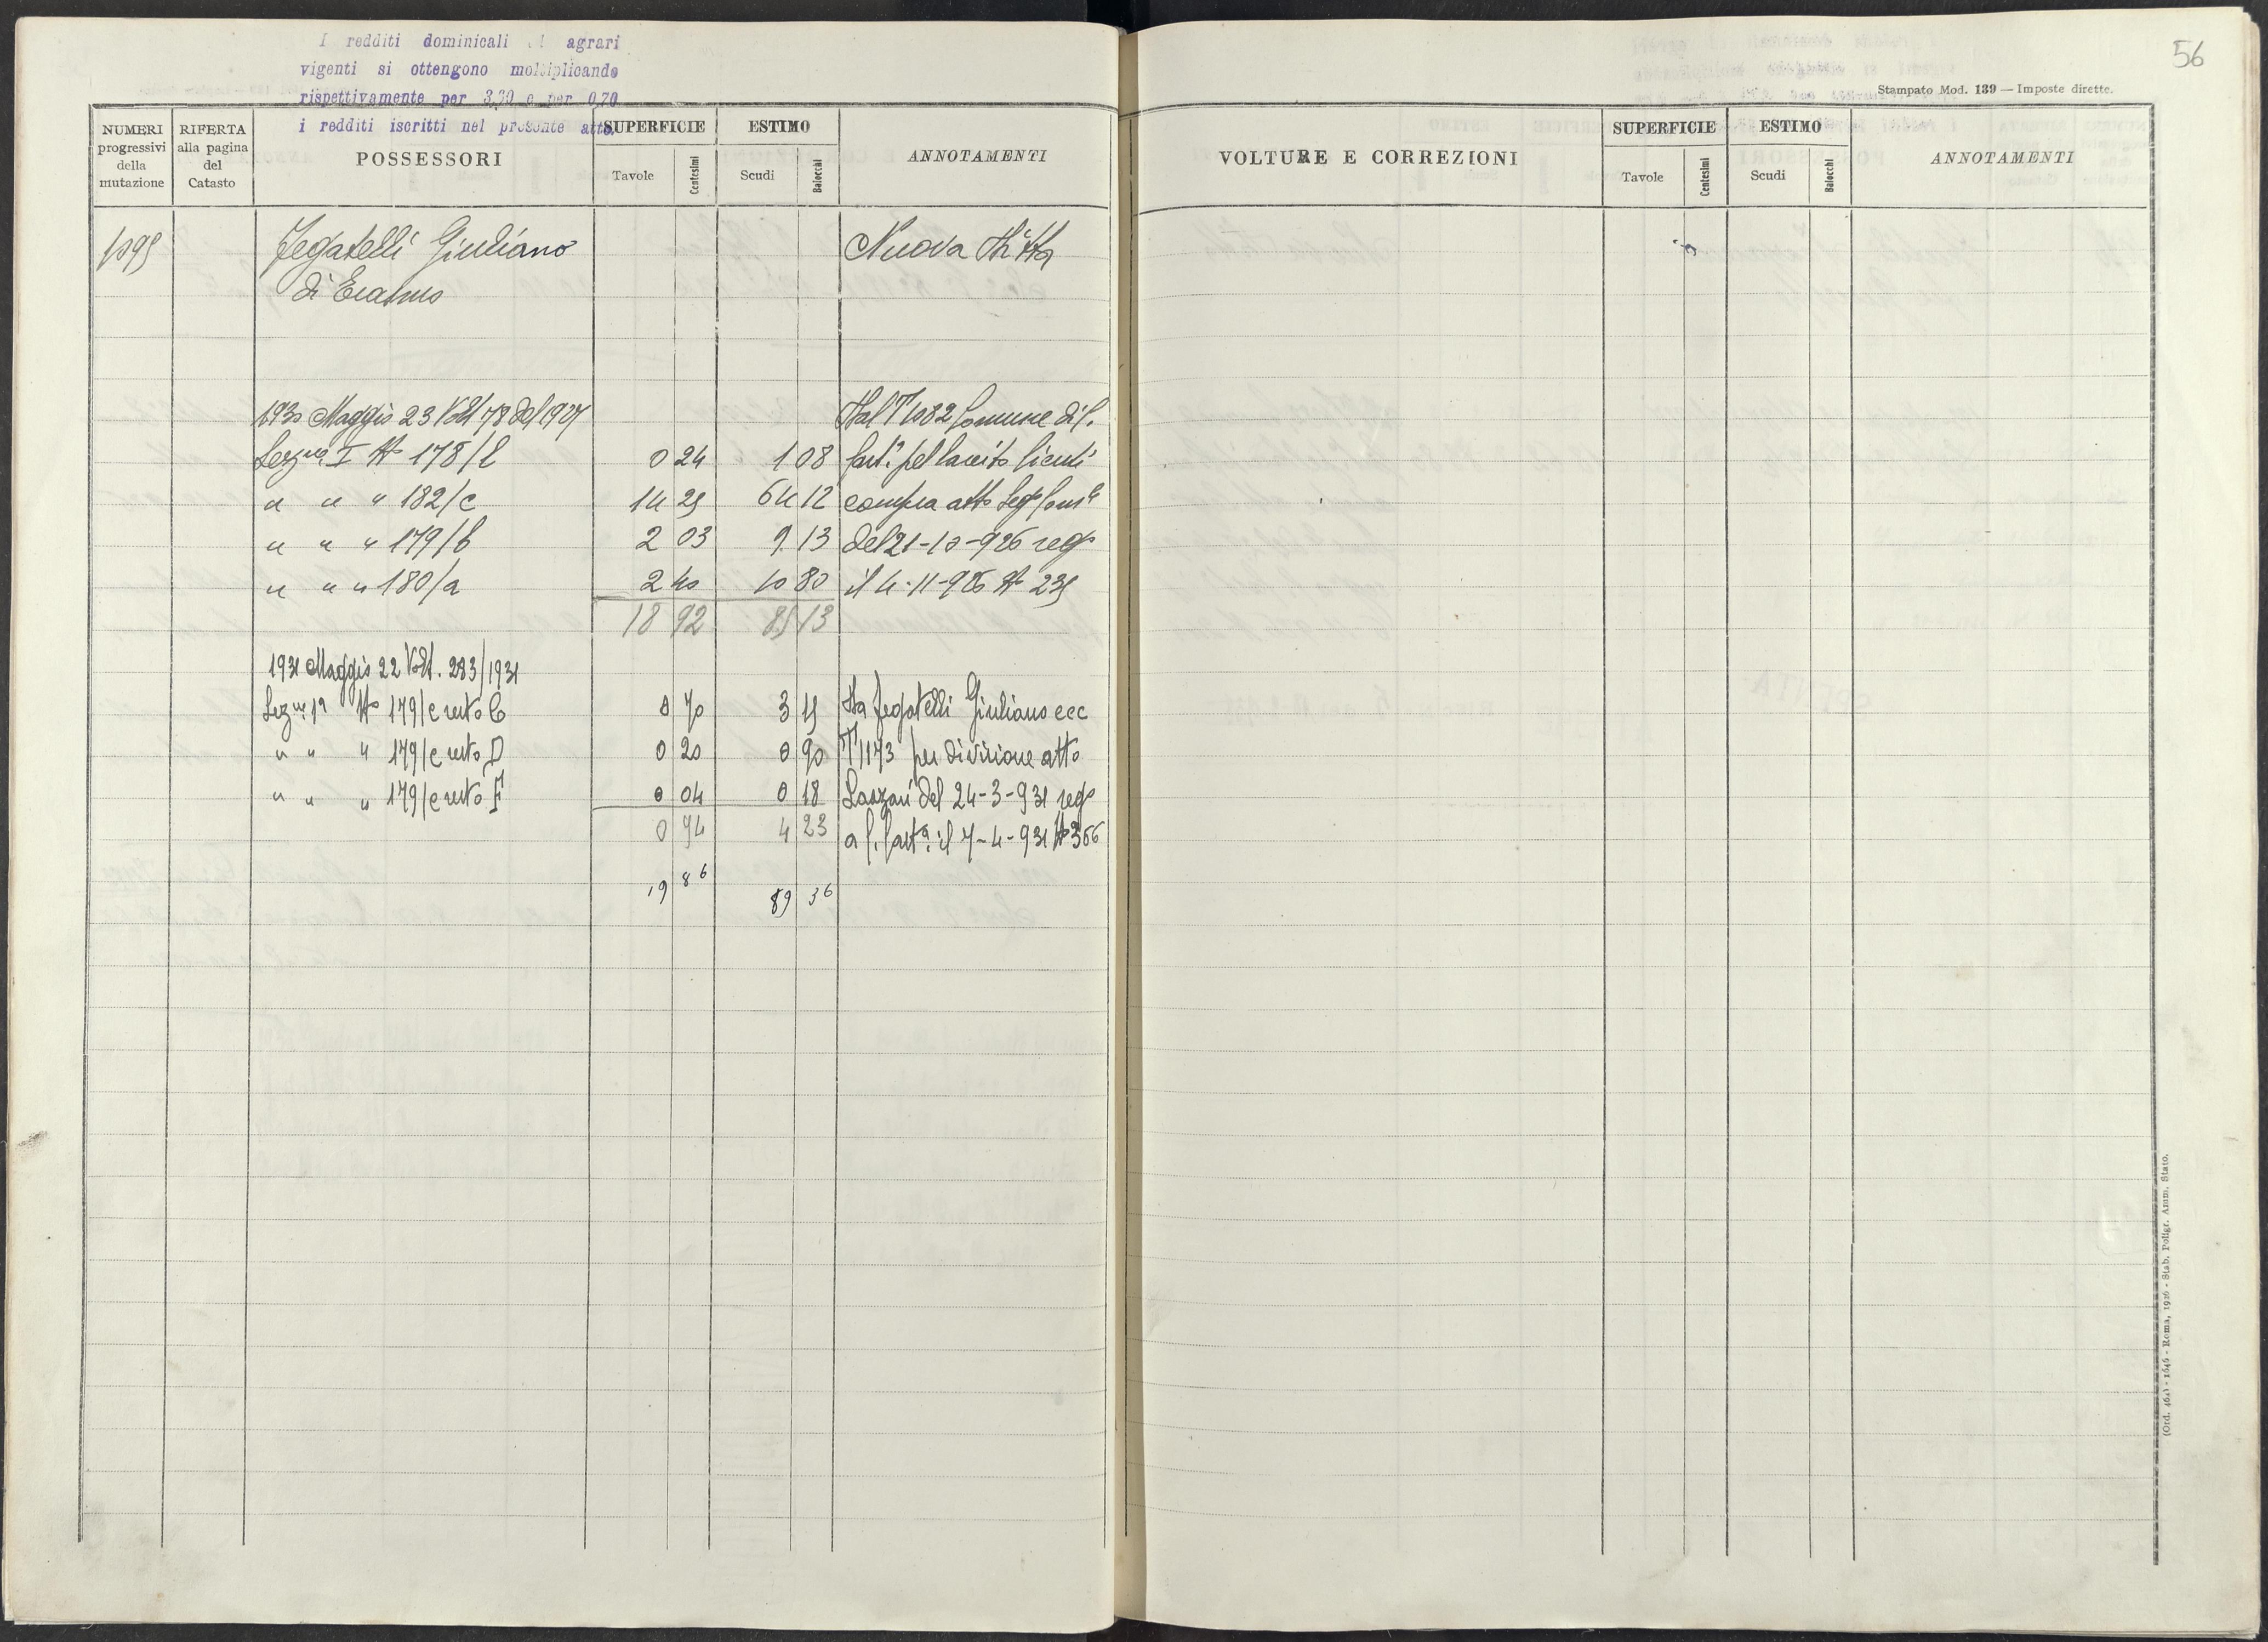 I redditi dominicali ed agrari
vigenti si ottengono moltiplicando
rispettivamente per 3,30 e per 0,70
i redditi iscritti nel presente atto.
NUMERI progressivi della mutazione
RIFERTA alla pagina del Catasto
POSSESSORI
SUPERFICIE
Tavole Centesimi
ESTIMO
Scudi Baiocchi
ANNOTAMENTI
1095 Fegatelli Giuliano Nuova Ditta
di Erasmo
1930 Maggio 23 Volt 78 del 1927 Dal P 1082 Comune di C.
Sezne I N 178/l 0 24 1 08 Cast.
" " " 182/c 14 25 64 12 compra atto Segr Comle
" " " 179/b 2 03 9 13 del 21-10-926 reg
" " " 180/a 2 40 10 80 il 4-11-926 N 235
18 92 85 13
1931 Maggio 22 Volt. 283/1931
Sezne 1a N 179/c resto C 0 70 3 15 Da Fegatelli Giuliano ecc
" " " 179/c resto D 0 20 0 90 P 1173 per divisione atto
" " " 179/c resto F 0 04 0 18 Lazzari del 24-3-931 reg
0 94 4 23 a C. Cast. il 7-4-931 N 366
19 86 89 36
56
Stampato Mod. 139 — Imposte dirette.
VOLTURE E CORREZIONI
SUPERFICIE
Tavole Centesimi
ESTIMO
Scudi Baiocchi
ANNOTAMENTI
(Ord. 464) - 1646 - Roma, 1926 - Stab. Poligr. Amm. Stato.